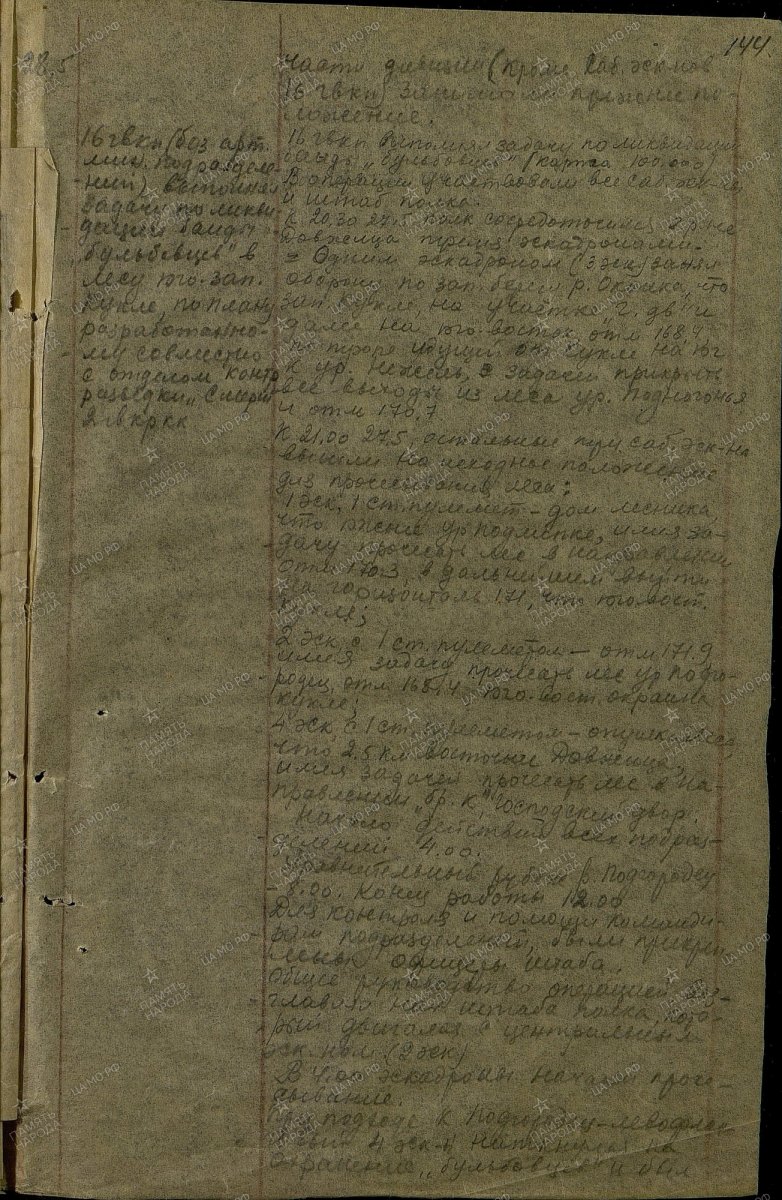 144.
28.5
Части дивизии (кроме Саб. эск-нов
16 гвкп) занимали прежнее по-
ложение.
16 гвкп (без арт.
мин. подразделе-
ний) выполнял
задачу по ликви-
дации банды
"бульбовцев" в
лесу юго-зап.
Кукле, по плану
разработанно-
му совместно
с отделом контр
разведки "Смерш"
2 гв кркк
16 гвкп выполнял задачу по ликвидации
банды "бульбовцев" (карта 100.000)
В операции участвовали все саб. эск-ны
и штаб полка.
К 20.30 27.5 полк сосредоточился в р-не
Довжица тремя эскадронами.
Одним эскадроном (3 эск) занял
оборону по зап. берегу р. что
зап. Кукле, на участке Г. дв. и
далее на юго-восток, отм. 168,4
по тропе идущей от Кукле на юг
к ур. с задачей прикрыть
все выходы из леса ур. Подногонья
и отм 170,7
К 21.00 27.5 остальные три саб. эск-на
вышли на исходное положение
для прочесывания леса:
1 эск, 1 ст. пулемет – дом лесника,
что южнее ур. имея за-
дачу прочесать лес в направлении
отм 170.3 в дальнейшем выйти
на горизонталь 171, что юго-вост.
Кукле;
2 эск с 1 ст. пулеметом – отм 171.9
имея задачу прочесать лес ур Подго-
родец, отм. 168,4, юго-вост. окраина
Кукле;
4 эск с 1 ст. пулеметом – опушка леса
что 2.5 км восточнее Довжица,
имея задачей прочесать лес в на-
правлении "бр. к", Господский двор.
Начало действий всех подраз-
делений 4.00.
Уравнительный рубеж р. Подгородец
– 8.00. Конец работы 12.00
Для контроля и помощи команди-
рам подразделений, были прикреп
лены офицеры штаба.
Общее руководство операцией воз-
главлял нач штаба полка, кото-
рый двигался с центральным
эск-ном (2 эск)
В 4.00 эскадроны начали проче-
сывание.
При подходе к Подгородец – левофлан
говый 4 эск-н наткнулся на
охранение "бульбовцев" и был